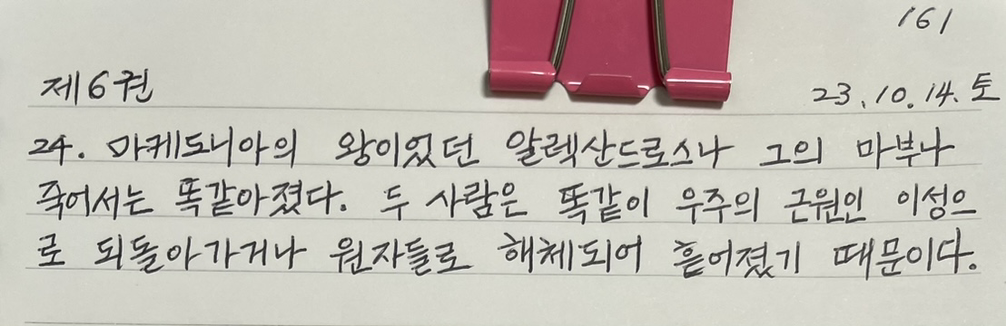 161
제6권
23.10.14.토
24. 마케도니아의 왕이었던 알렉산드로스나 그의 마부나
죽어서는 똑같아졌다. 두 사람은 똑같이 우주의 근원인 이성으
로 되돌아가거나 원자들로 해체되어 흩어졌기 때문이다.